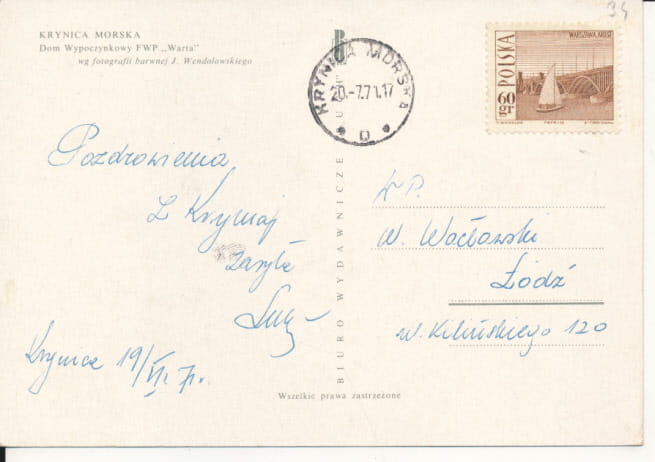 KRYNICA MORSKA
Dom Wypoczynkowy FWP „Warta”
wg fotografii barwnej J. Wendołowskiego
Pozdrowienia
z Krynicy
zasyła
Krynica 19/VII 71r.
BIURO WYDAWNICZE
Wszelkie prawa zastrzeżone
KRYNICA MORSKA
20.-7.71.17
D
POLSKA
60 gr
WARSZAWA, MOST
34
W.P.
W. Wocławski
Łódź
w. Kilińskiego 120